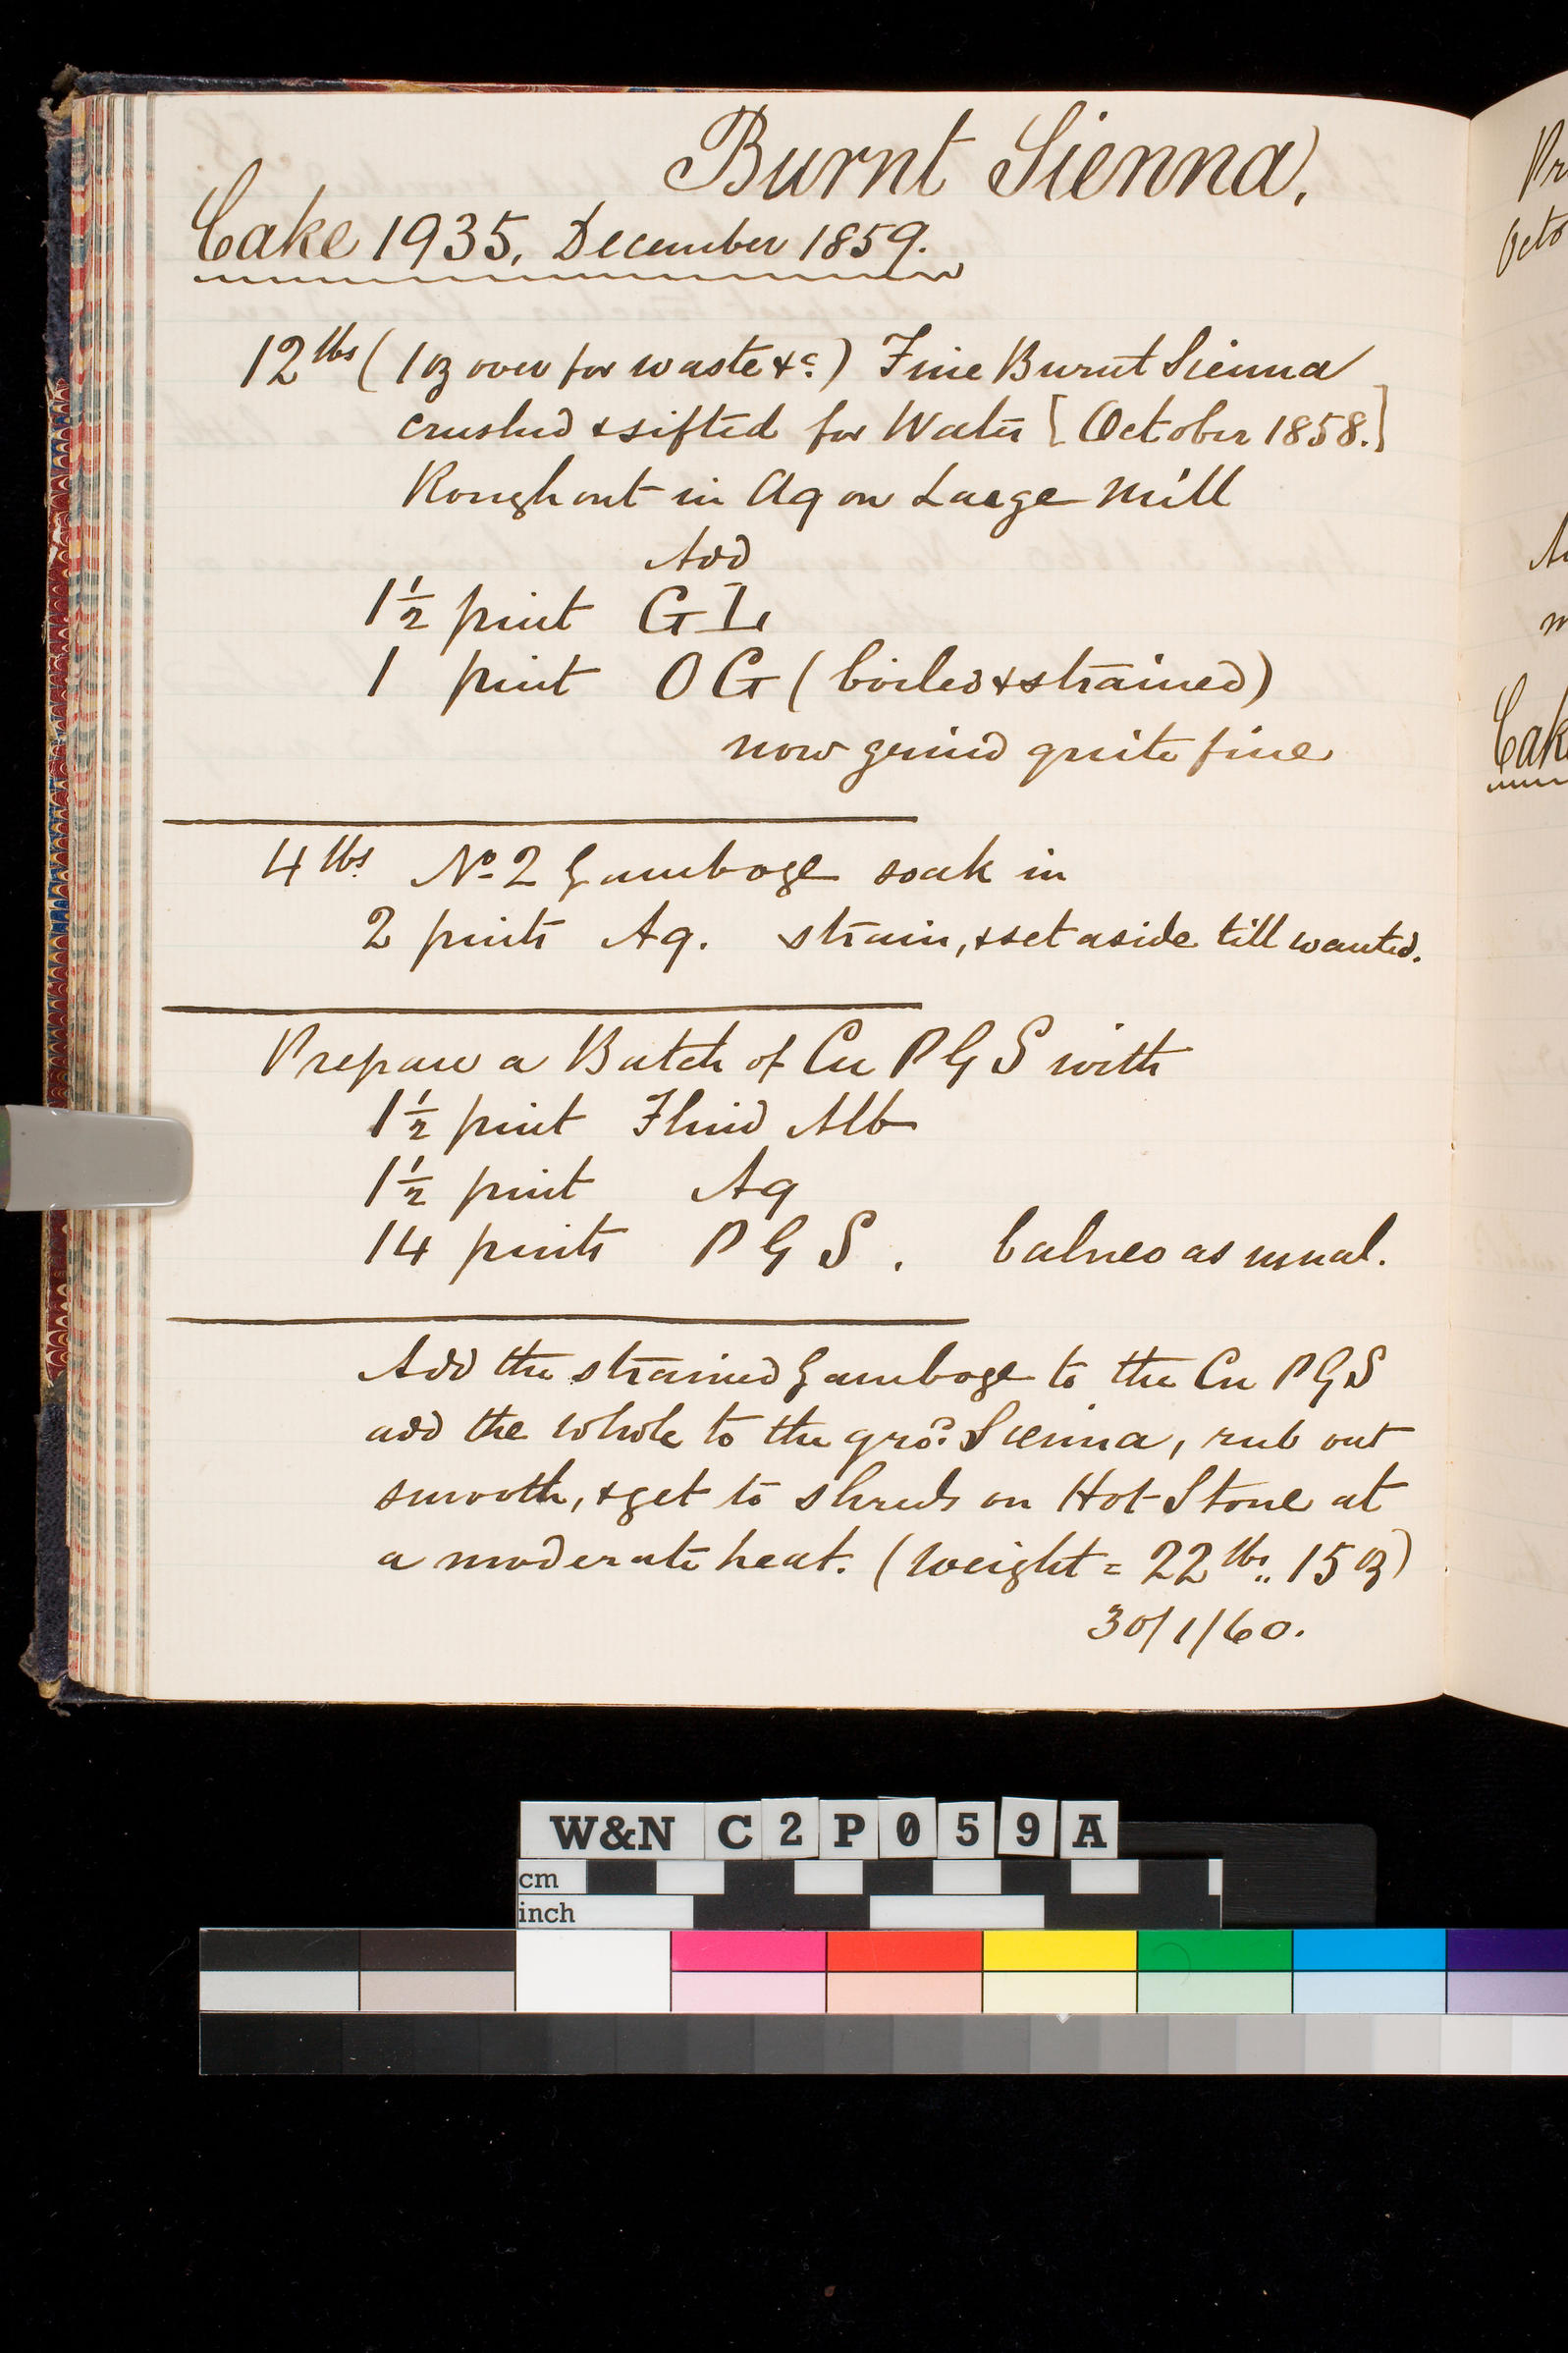 Burnt Sienna,
Cake 1935, December 1859.
12 lbs ( 1 oz over for waste &c. ) Fine Burnt Sienna
crushed & sifted for Water [October 1858.]
Rough out in Aq on Large Mill
Add
1½ pint GL
1 pint OG (boiled & strained)
now grind quite fine
4 lbs No 2 Gamboge soak in
2 pints Aq. strain, & set aside till wanted.
Prepare a Batch of Cu P G S with
1½ pint Fluid Alb
1½ pint Aq
14 pints P G S. balneo as usual.
Add the strained Gamboge to the Cu P G S
add the whole to the grod. Sienna, rub out
smooth, & get to shreds on Hot Stone at
a moderate heat. (Weight = 22 lbs.. 15 oz)
30/1/60.
Pr
Octo
Cak
W&N C2P059A
cm
inch